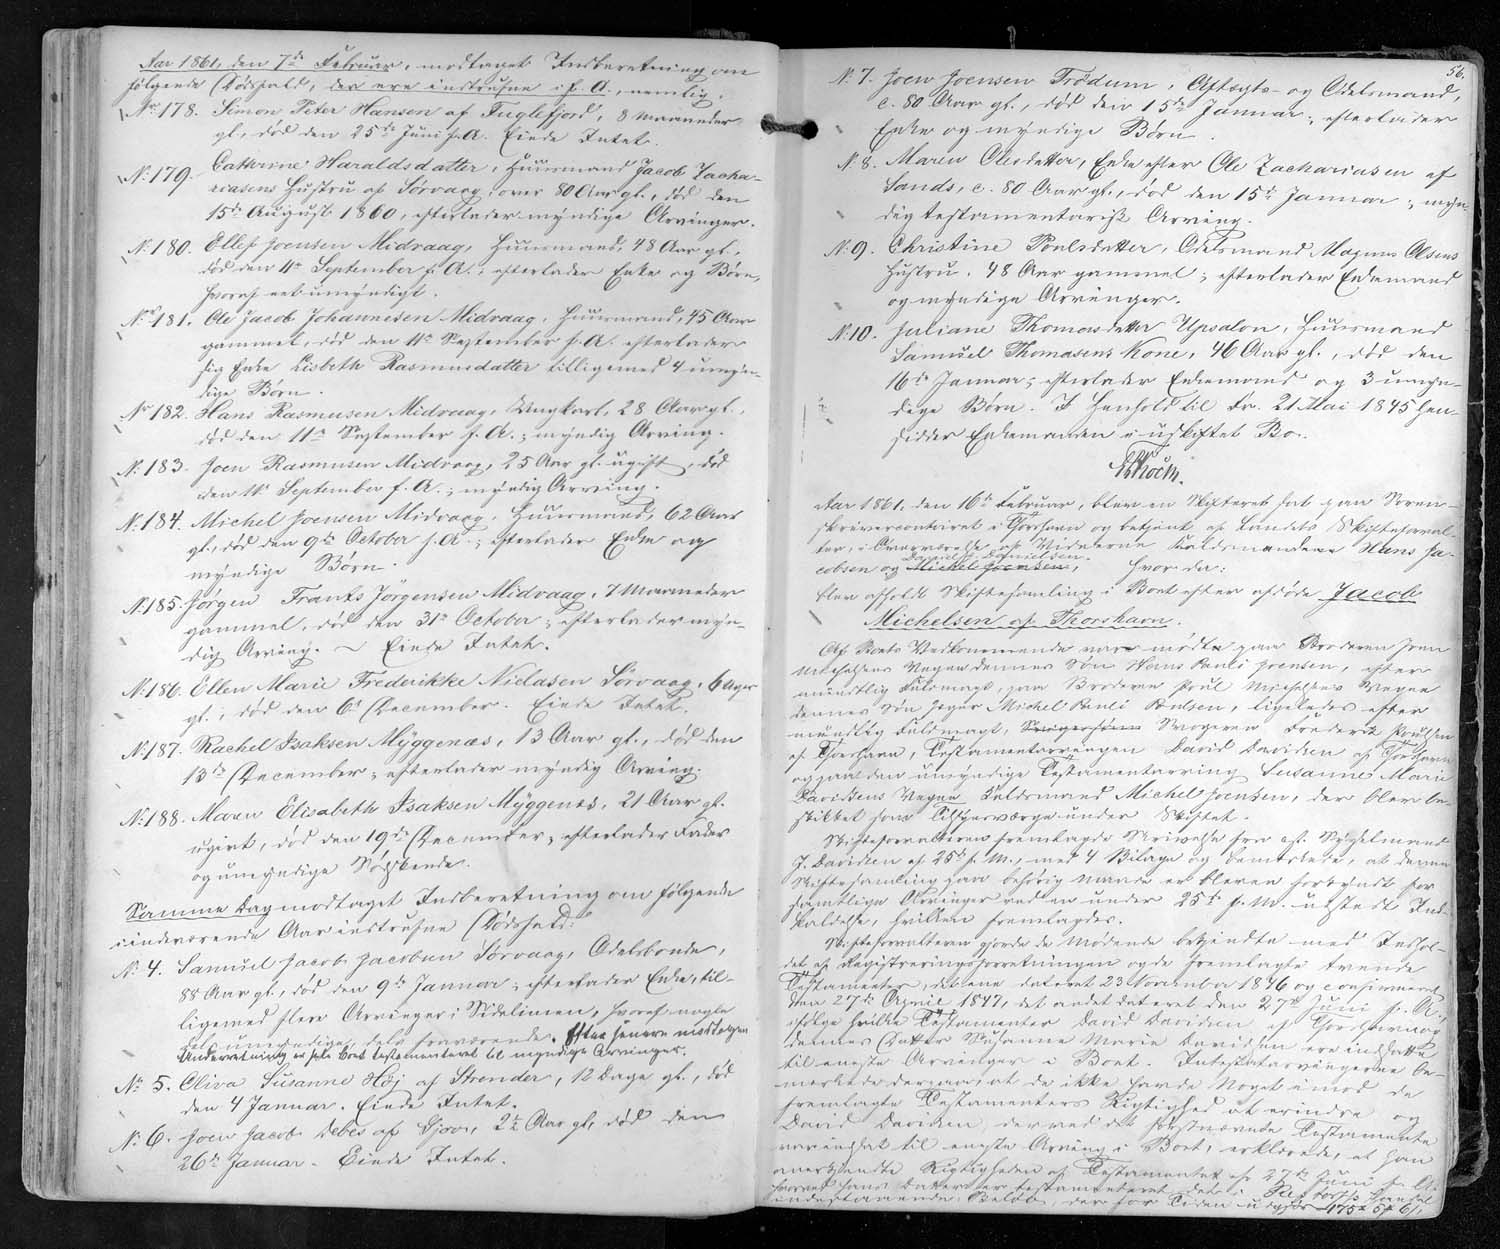 Aar 1861, den 7de Februar, modtaget Indberetning om
følgende Dødsfald, der ere indtrufne i f. A., nemlig.
No 178. Simon Peter Hansen af Fuglefjord, 8 Maaneder
gl., død den 25de Juni f. A. Eiede Intet.
No 179. Cathrine Haraldsdatter, Huusmand Jacob Zacha-
riasens Hustru af Sørvaag, over 80 Aar gl., død den
15de August 1860, efterlader myndige Arvinger.
No 180. Ellef Joensen Midvaag, Huusmand, 48 Aar gl.,
død den 11te September f. A.; efterlader Enke og Børn,
hvoraf eet umyndigt.
No 181. Ole Jacob Johannesen Midvaag, Huusmand, 45 Aar
gammel, død den 11te September f. A. efterlader
sig Enke Lisbeth Rasmusdatter tilligemed 4 umyn-
dige Børn.
No 182. Hans Rasmusen Midvaag, Ungkarl, 28 Aar gl.,
død den 11te September f. A.; myndig Arving.
No 183. Joen Rasmusen Midvaag, 25 Aar gl. ugift, død
den 11te September f. A.; myndig Arving.
No 184. Michel Joensen Midvaag, Huusmand, 62 Aar
gl., død den 9de October f. A.; efterlader Enke og
myndige Børn.
No 185. Jørgen Frants Jørgensen Midvaag, 7 Maaneder
gammel, død den 31te October; efterlader myn-
dig Arving. – Eiede Intet.
No 186. Ellen Marie Frederikke Niclasen Sørvaag, 6 Uger
gl., død den 6te December. Eiede Intet.
No 187. Rachel Isaksen Myggenæs, 13 Aar gl., død den
13de December; efterlader myndig Arving.
No 188. Maren Elisabeth Isaksen Myggenæs, 21 Aar gl.
ugivt, død den 19de December; efterlader Fader
og umyndige Sødskende.
Samme Dag modtaget Indberetning om følgende
i indeværende Aar indtrufne Dødsfald:
No 4. Samuel Jacob Jacobsen Sørvaag, Odelsbonde,
88 Aar gl., død den 9de Januar; efterlader Enke, til-
ligemed flere Arvinger i Sidelinien, hvoraf nogle
ere umyndige, dels fraværende. Efter senere modtagen
Underretning er hele Boet testamenteret til myndige Arvinger.
No 5. Oliva Susanne Høj af Strender, 12 Dage gl., død
den 4 Januar. Eiede Intet.
No 6. Joen Jacob Debes af Gjov, 2½ Aar gl, død den
26de Januar. Eiede Intet.
56.
No 7. Joen Joensen Trødum, Aftægts- og Odelsmand,
c. 80 Aar gl., død den 15de Januar; efterlader
Enke og myndige Børn.
No 8. Maren Olesdatter, Enke efter Ole Zachariasen af
Sands, c. 80 Aar gl., død den 15de Januar; myn-
dig testamentarisk Arving.
No 9. Christine Poulsdatter, Odelsmand Magnus Olsens
Hustru, 48 Aar gammel; efterlader Enkemand
og myndige Arvinger.
No 10. Juliane Thomasdatter Upsalon, Huusmand
Samuel Thomasens Kone, 46 Aar gl., død den
16de Januar; efterlader Enkemand og 3 umyn-
dige Børn. I Henhold til Fr. 21 Mai 1845 hen-
sidder Enkemanden i uskiftet Bo.
Aar 1861, den 16de Februar, blev en Skifteret sat paa Soren-
skrivercontoiret i Thorshavn og betjent af Landets Skifteforval-
ter, i Overværelse af Vidnerne Kaldsmændene Hans Ja-
cobsen og Daniel J. Danielsen, Michel Joensen, hvor da:
blev afholdt Skiftesamling i Boet efter afdøde Jacob
Michelsen af Thorshavn.
Af Boets Vedkommende vare mødte paa Broderen Joen
Michelsens Vegne dennes Søn Hans Pauli Joensen, efter
mundtlig Fuldmagt, paa Broderen Poul Michelsens Vegne
dennes Søn Jæger Michel Pauli Poulsen, ligeledes efter
mundtlig Fuldmagt, Svigersønnen Svogeren Frederik Poulsen
af Thorshavn, Testamentarvingen David Davidsen af Thorshavn
og paa den umyndige Testamentarving Susanne Marie
Davidsens Vegne Kaldsmand Michel Joensen, der blev be-
skikket som Tilsynsværge under Skiftet.
Skifteforvalteren fremlagde Skrivelse fra cst. Sysselmand
J. Davidsen af 25de f. M., med 4 Bilage og bemærkede, at denne
Skiftesamling paa behørig Maade er bleven forkyndt for
samtlige Arvinger ved en under 25de f. M. udstedt Ind-
kaldelse, hvilken fremlagdes.
Skifteforvalteren gjorde de Mødende bekjendte med Indhol-
det af Registreringsforretningen og de fremlagte tvende
Testamenter, det ene dateret 23 November 1846 og confirmeret
den 27de April 1847, det andet dateret den 27de Juni f. A.,
ifølge hvilke Testamenter David Davidsen af Thorshavn og
dennes Datter Susanne Marie Davidsen ere indsatte
til eneste Arvinger i Boet. Intestatarvingerne be-
mærkede derpaa, at de ikke havde Noget imod de
fremlagte Testamenters Rigtighed at erindre og
David Davidsen, der ved det førstnævnte Testamente
var indsat til eneste Arving i Boet, erklærede, at han
anerkjendte Rigtigheden af Testamentet af 27de Juni f. A.
hvorved hans Datter er testamenteret det i
indestaaende Beløb, der for Tiden udgjør 175